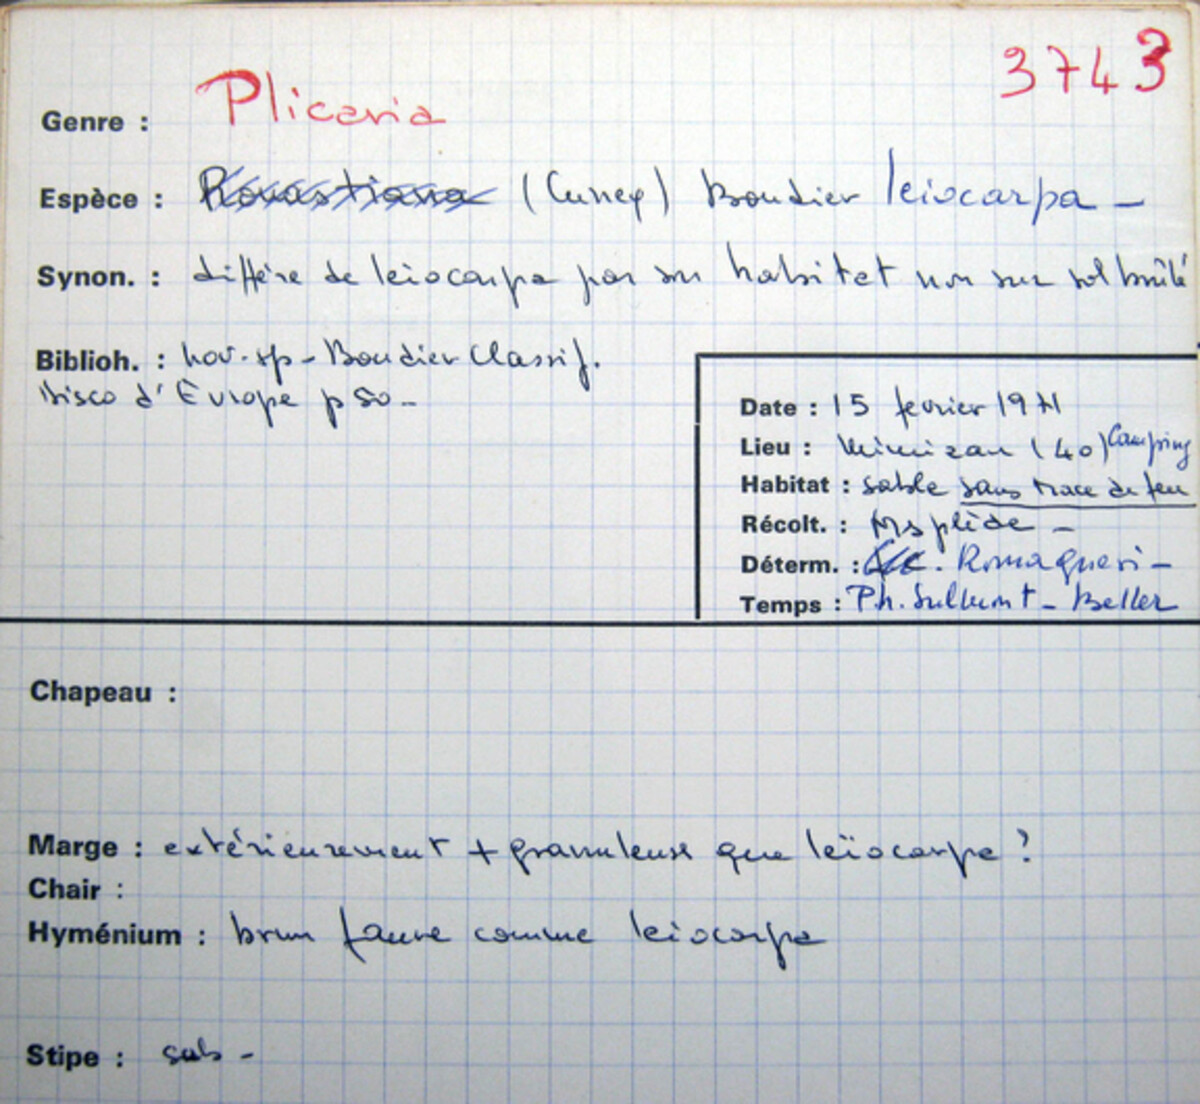 3743
Genre : Plicaria
Espèce : (Currey) Boudier leiocarpa -
Synon. : diffère de leiocarpa par son habitat non sur sol brûlé
Biblioh. : nov. sp - Boudier Classif.
Disco d'Europe p 50 -
Date : 15 fevrier 1971
Lieu : Mimizan (40) Camping
Habitat : sable sans trace de feu
Récolt. : Msplède -
Déterm. : Romagnesi -
Temps : Ph. - Beller
Chapeau :
Marge : extérieurement + granuleuse que leïocarpa ?
Chair :
Hyménium : brun fauve comme leiocarpa
Stipe : sub -